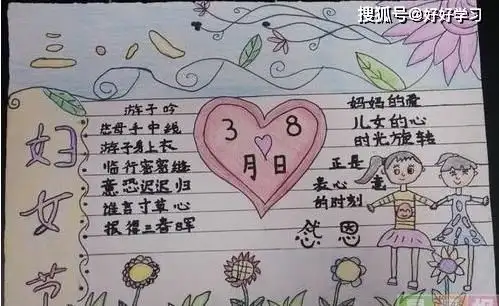 搜狐号@好好学习
三·八
妇女节
游子吟
慈母手中线
游子身上衣
临行密密缝
意恐迟迟归
谁言寸草心
报得三春晖
3 8
月日
妈妈的爱
儿女的心
时光旋转
正是
表心意
的时刻
感恩